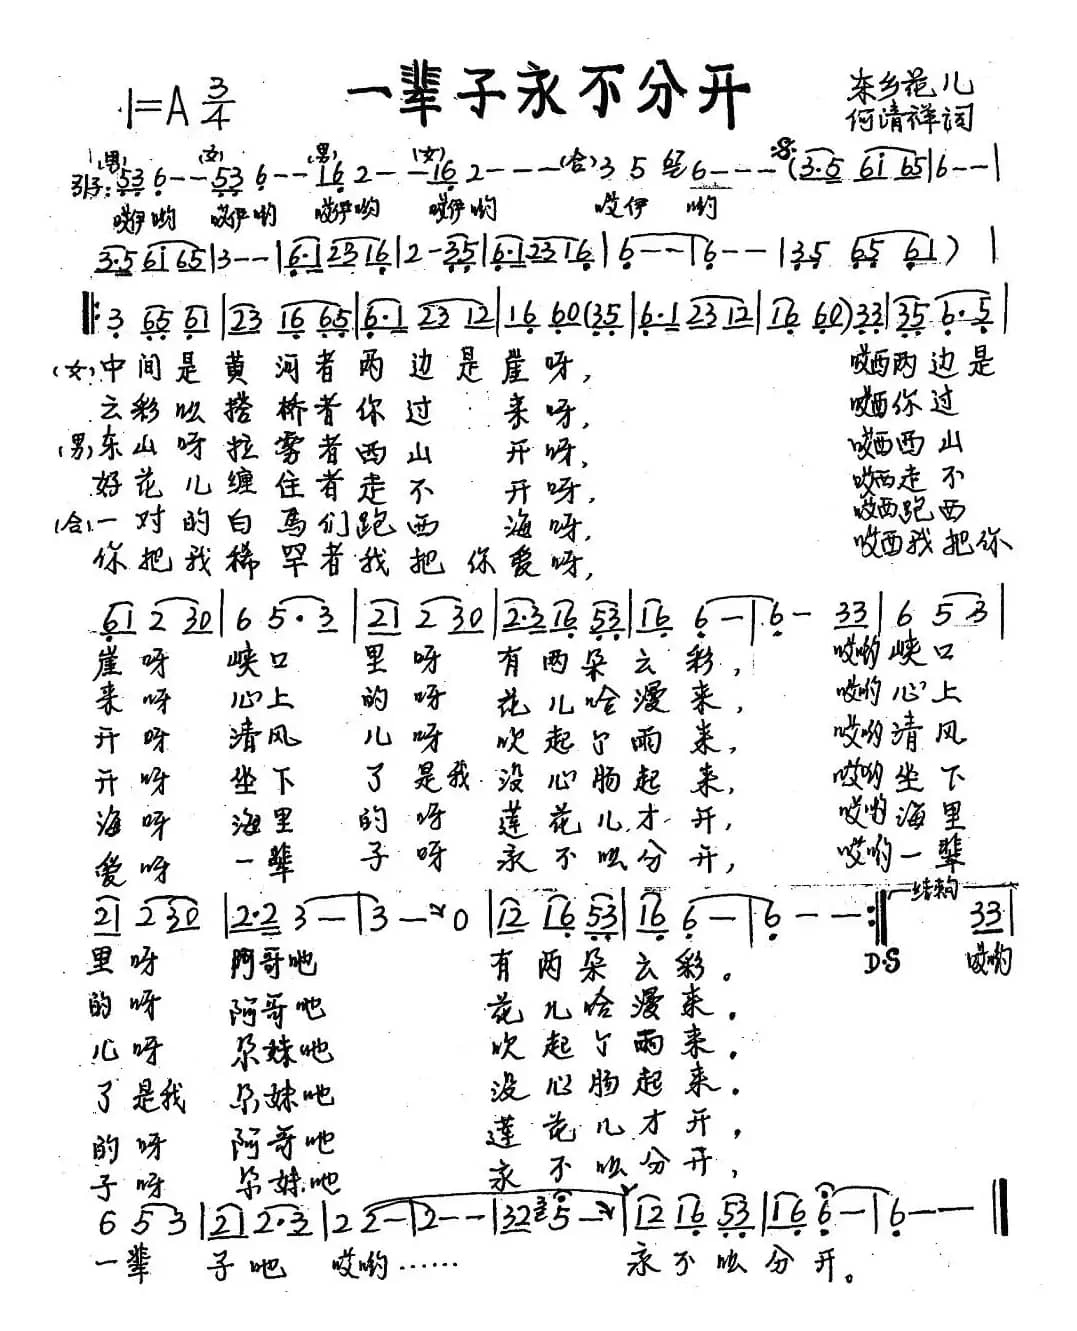 一辈子永不分开
1=A 3/4
东乡花儿
何清祥词
(男) (女) (男) (女) (合)
引子: 53 6 - - 53 6 - - 16 2 - - 16 2 - - - 3 5 6 - - - (3·5 61 65 | 6 - - |
哎伊哟 哎伊哟 哎伊哟 哎伊哟 哎伊 哟
3·5 61 65 | 3 - - | 6·1 23 16 | 2 - 35 | 6·1 23 16 | 6 - - | 6 - - | 35 65 61 ) |
‖: 3 65 61 | 23 16 65 | 6·1 23 12 | 16 60 (35 | 6·1 23 12 | 16 60) 33 | 35 6·5 |
(女) 中间是黄河者两边是崖呀, 哎西两边是
云彩呀搭桥者你过来呀, 哎西你过
(男) 东山呀拉雾者西山开呀, 哎西西山
好花儿缠住者走不开呀, 哎西走不
(合) 一对的白马们跑西海呀, 哎西跑西
你把我稀罕者我把你爱呀, 哎西我把你
61 2 30 | 6 5·3 | 21 2 30 | 2·3 16 53 | 16 6 - | 6 - 33 | 6 5 3 |
崖呀 峡口 里呀 有两朵云彩, 哎哟峡口
来呀 心上 的呀 花儿哈漫来, 哎哟心上
开呀 清风 儿呀 吹起了雨来, 哎哟清风
开呀 坐下 了是我 没心肠起来, 哎哟坐下
海呀 海里 的呀 莲花儿才开, 哎哟海里
爱呀 一辈 子呀 永不呀分开, 哎哟一辈
结束句
21 2 30 | 2·2 3 - | 3 - 0 | 12 16 53 | 16 6 - | 6 - - :‖ 33 |
里呀 阿哥吔 有两朵云彩。 D.S 哎哟
的呀 阿哥吔 花儿哈漫来。
儿呀 尕妹吔 吹起了雨来。
了是我 尕妹吔 没心肠起来。
的呀 阿哥吔 莲花儿才开,
子呀 尕妹吔 永不呀分开,
6 5 3 | 21 2·3 | 2 2 - | 2 - - | 32 3 5 - | 12 16 53 | 16 6 - | 6 - - ‖
一辈 子吔 哎哟…… 永不呀分开。